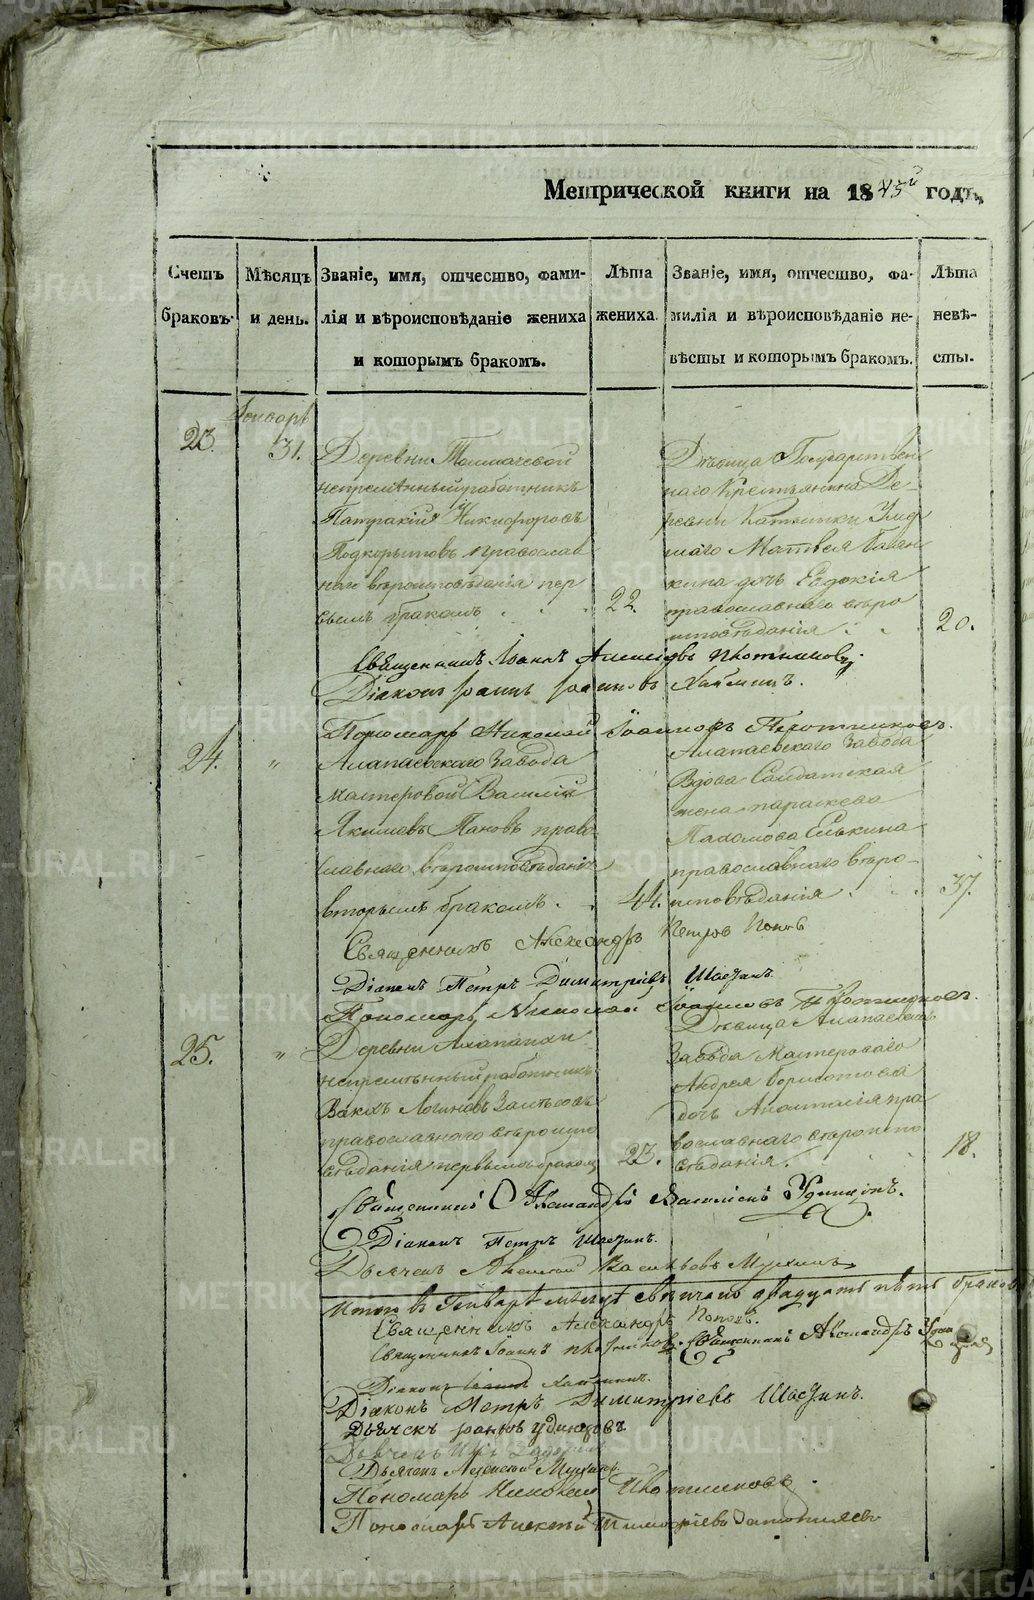 Метрической книги на 1845й годъ,
Счетъ браковъ.
Мѣсяцъ и день.
Званіе, имя, отчество, фами-
лія и вѣроисповѣданіе жениха
и которымъ бракомъ.
Лѣта
жениха.
Званіе, имя, отчество, фа-
милія и вѣроисповѣданіе не-
вѣсты и которымъ бракомъ.
Лѣта
невѣ-
сты.
Генварь
23.
31.
Деревни Толмачевой
непремѣнный работникъ
Патракій Никифоровъ
Подкорытовъ православ
наго вѣроисповѣданія пер
вымъ бракомъ
22.
Дѣвица Государствен
наго Крестьянина Де-
ревни
Матвея
дочь Евдокія
православнаго вѣро
исповѣданія
20.
Священникъ Іоаннъ Алексіевъ Плотниковъ
Діаконъ Іоаннъ Іоанновъ
Пономарь Николай Іоанновъ Плотниковъ.
24.
"
Алапаевскаго Завода
мастеровой Василій
Якимовъ Пановъ право
славнаго вѣроисповѣданія
вторымъ бракомъ.
44.
Алапаевскаго Завода
Вдова Солдатская
жена Параскева
Пахомова Елькина
православнаго вѣро-
исповѣданія
37.
Священникъ Александръ Петровъ Поповъ
Діаконъ Петръ Димитріевъ Шастинъ
Пономарь Николай Іоанновъ Плотниковъ.
25.
"
Деревни Алапаихи
непремѣнный работникъ
Вакхъ Логиновъ
православнаго вѣроиспо
вѣданія первымъ бракомъ
23.
Дѣвица Алапаевскаго
Завода Мастероваго
Андрея
дочь Анастасія пра
вославнаго вѣроиспо
вѣданія.
18.
Священникъ Александръ Василіевъ Удинцовъ.
Діаконъ Петръ Шастинъ.
Дьячекъ Алексей Васильевъ Мухинъ
Итого въ Генварѣ мѣсяцѣ свѣнчано двадцать пять браковъ
Священникъ Александръ Поповъ.
Священникъ Іоаннъ Плотниковъ. Священникъ Александръ Удинцовъ
Діаконъ Іоаннъ
Діаконъ Петръ Димитріевъ Шастинъ.
Дьячекъ Іоаннъ Удинцовъ
Дьячекъ
Дьячекъ Алексей Мухинъ.
Пономарь Николай Плотниковъ.
Пономарь Алексѣй